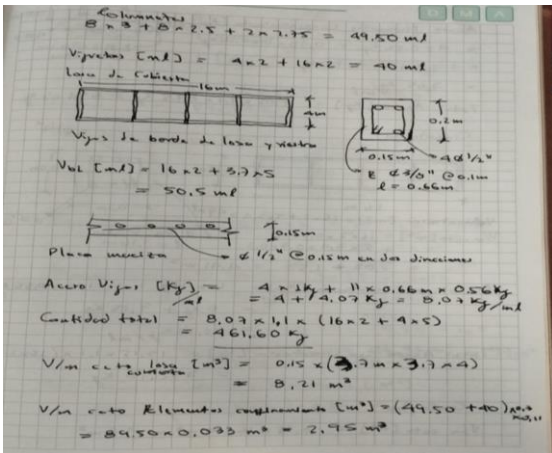 D M A
Columnetas
8 x 3 + 8 x 2.5 + 2 x 2.75 = 49.50 ml
Viguetas [ml] = 4 x 2 + 16 x 2 = 40 ml
Losa de Cubierta
16m
4m
0.2m
Vigas de borde de losa y riostra
0.15m
4 ϕ 1/2"
Vbl [ml] = 16 x 2 + 3,7 x 5
E ϕ 3/8" @ 0.1m
= 50,5 ml
l = 0.66m
0.15m
Placa maciza
ϕ 1/2" @ 0.15m en dos direcciones
Acero Vigas [Kg]/ml = 4 x 1kg + 11 x 0.66m x 0.56kg
= 4 + 4,07 Kg = 8,07 Kg/ml
Cantidad total = 8,07 x 1,1 x (16 x 2 + 4 x 5)
= 461,60 Kg
V/m cto losa cubierta [m³] = 0,15 x (3,7m x 3,7 x 4)
= 8,21 m³
V/m cto Elementos confinamiento [m³] = (49,50 + 40)
= 89.50 x 0,033 m³ = 2,95 m³